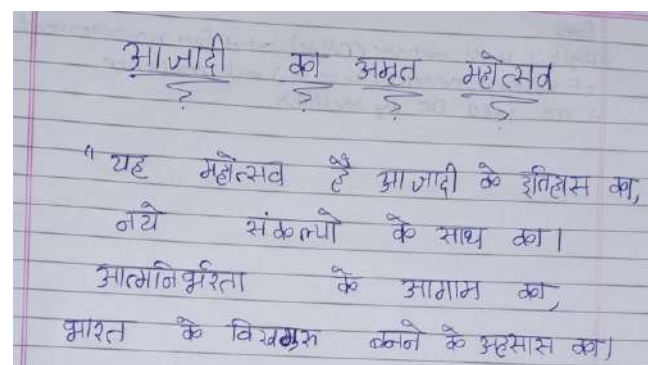 आजादी का अमृत महोत्सव
"यह महोत्सव है आजादी के इतिहास का,
नये संकल्पो के साथ का।
आत्मनिर्भरता के आगाम का,
भारत के विश्वगुरु बनने के अहसास का।